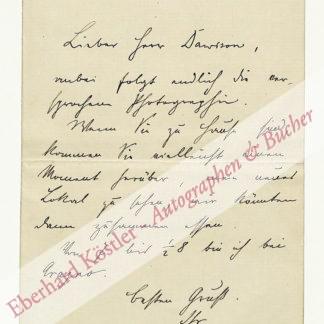 Lieber Herr Dawison,
anbei folgt endlich die ver-
sprochene Photographie.
Wenn Sie zu Hause sind
kommen Sie vielleicht einen
Moment herüber, neues
Lokal zu sehen wir könnten
dann zusammen essen.
bis ½8 bin ich bei
besten Gruß.
Ihr
Eberhard Köstler Autographen & Bücher